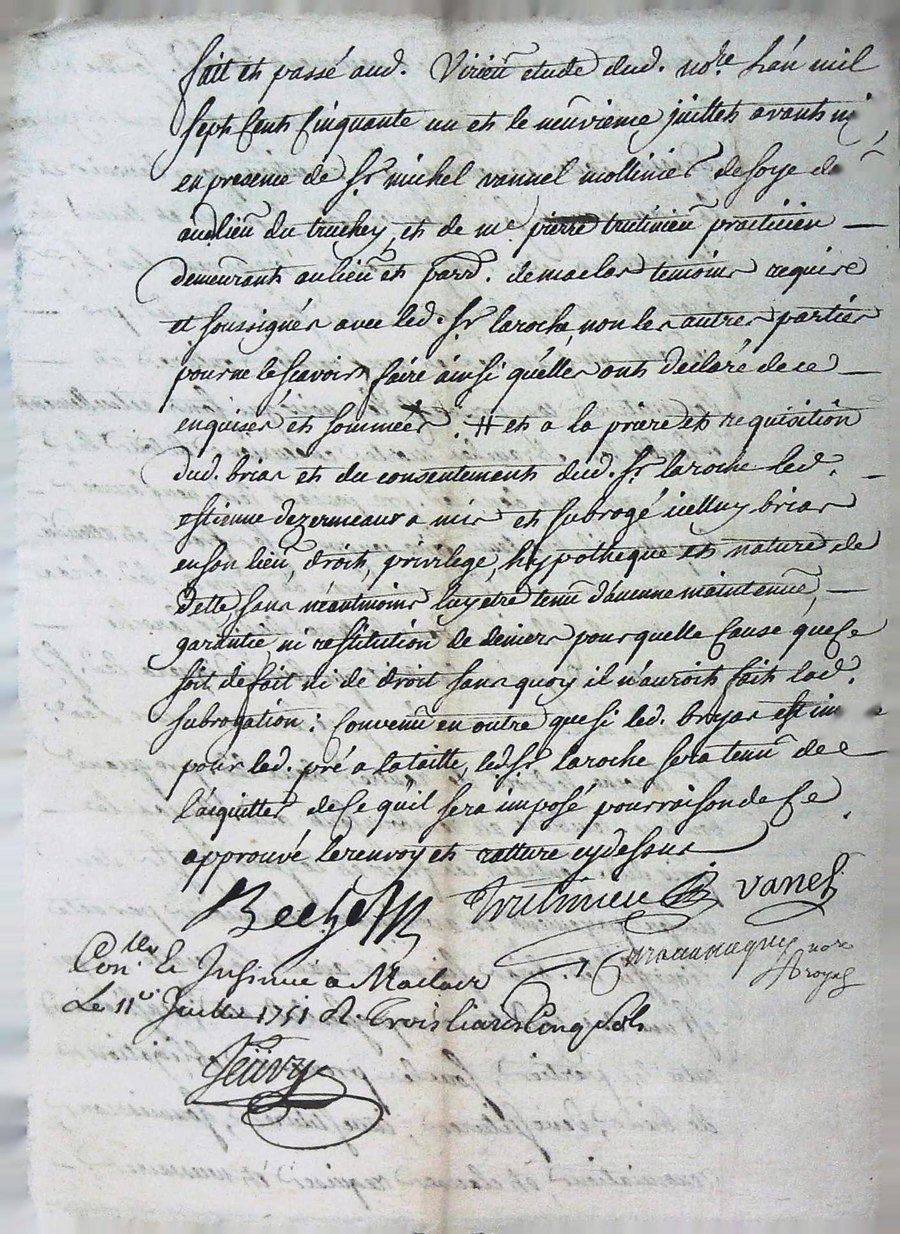 fait et passé aud. Virieu etude dud. nore. L'an mil
sept Cent Cinquante un et le neuvieme juillet avant mi
en presence de Sr. michel vannel mollinier de soye de
aud lieu du truchey, et de me pierre trutinieu praticien
demeurant au lieu et parr. de maclas temoins requis
et soussignés avec led. Sr. laroche, non les autres parties
pour ne le scavoir faire ainsi qu'elles ont declaré de ce
enquises et sommées . # et a la priere et requisition
dud. brias et du consentement dud. Sr. laroche led.
estienne dezermeaux a mis et subrogé icelluy brias
en son lieu, droit, privilege, hypotheque et nature de
dette, sans néantmoins luy etre tenu d'aucune maintenue,
garantie, ni restitution de deniers pour quelle Cause que Ce
soit de fait ni de droit sans quoy il n'auroit fait lad.
subrogation : Convenu en outre que si led. bryas est im
pour led. pré a la taille, led. Sr. laroche sera tenu de
l'aiquitter de Ce qu'il sera imposé pour raison de Ce
approuvé le renvoy et ratture cy dessus
Trutinieu vanel
nore royal
Conlé. & Insinué a Maclas
Le 11e. Juillet 1751 R. Trois liards Cinq sols